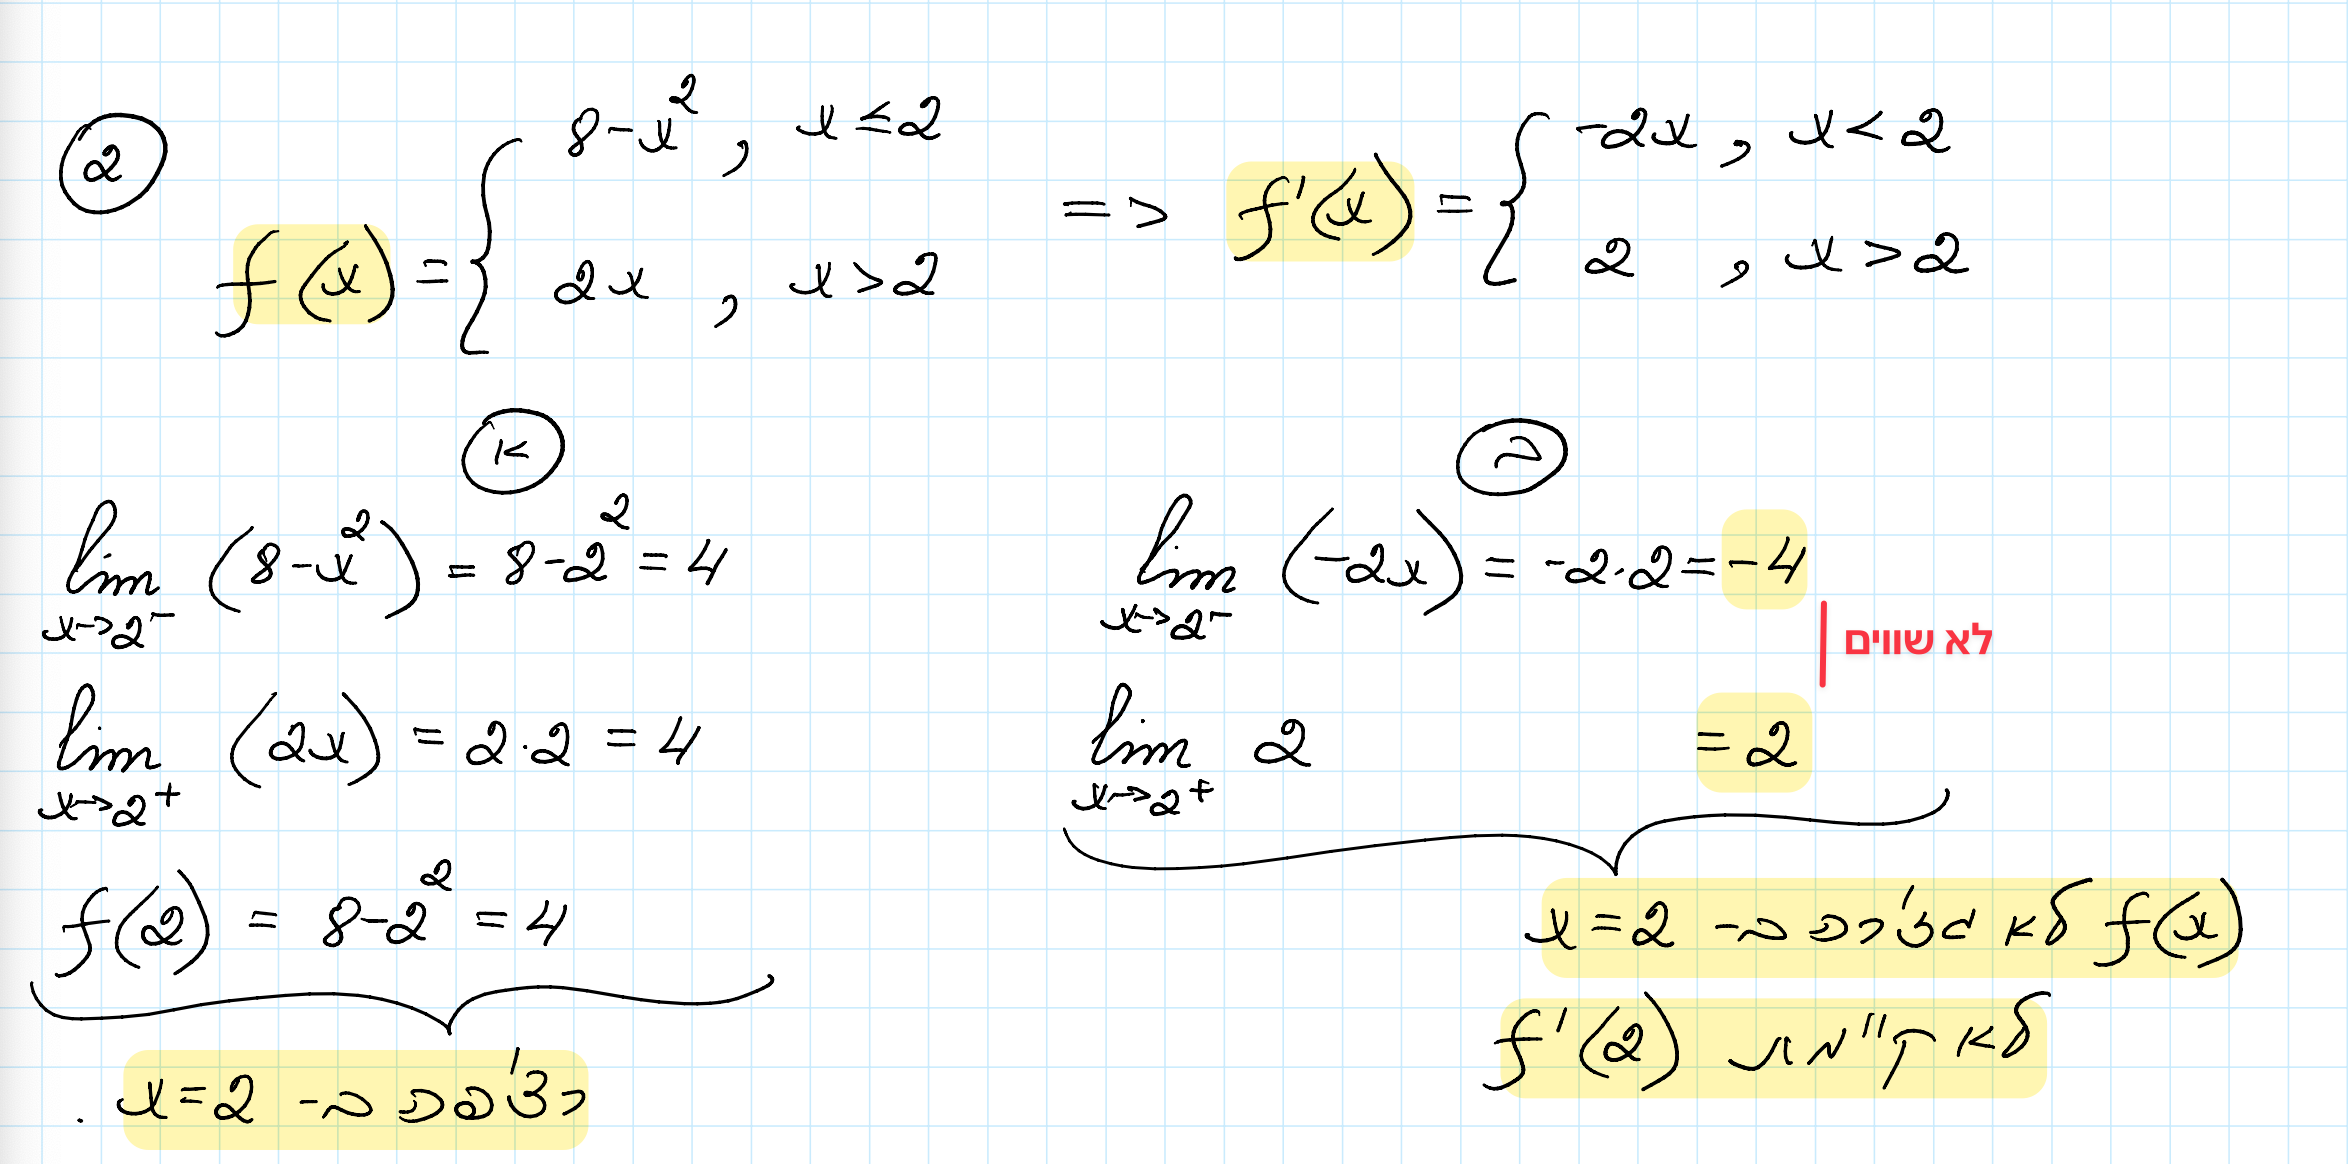 ② f(x) = { 8-x² , x≤2
2x , x>2
=> f'(x) = { -2x , x<2
2 , x>2
א
lim x→2⁻ (8-x²) = 8-2² = 4
lim x→2⁺ (2x) = 2·2 = 4
f(2) = 8-2² = 4
רציפה ב- x=2 .
ב
lim x→2⁻ (-2x) = -2·2 = -4
לא שווים
lim x→2⁺ 2 = 2
f(x) לא גזירה ב- x=2
לא קיימת f'(2)